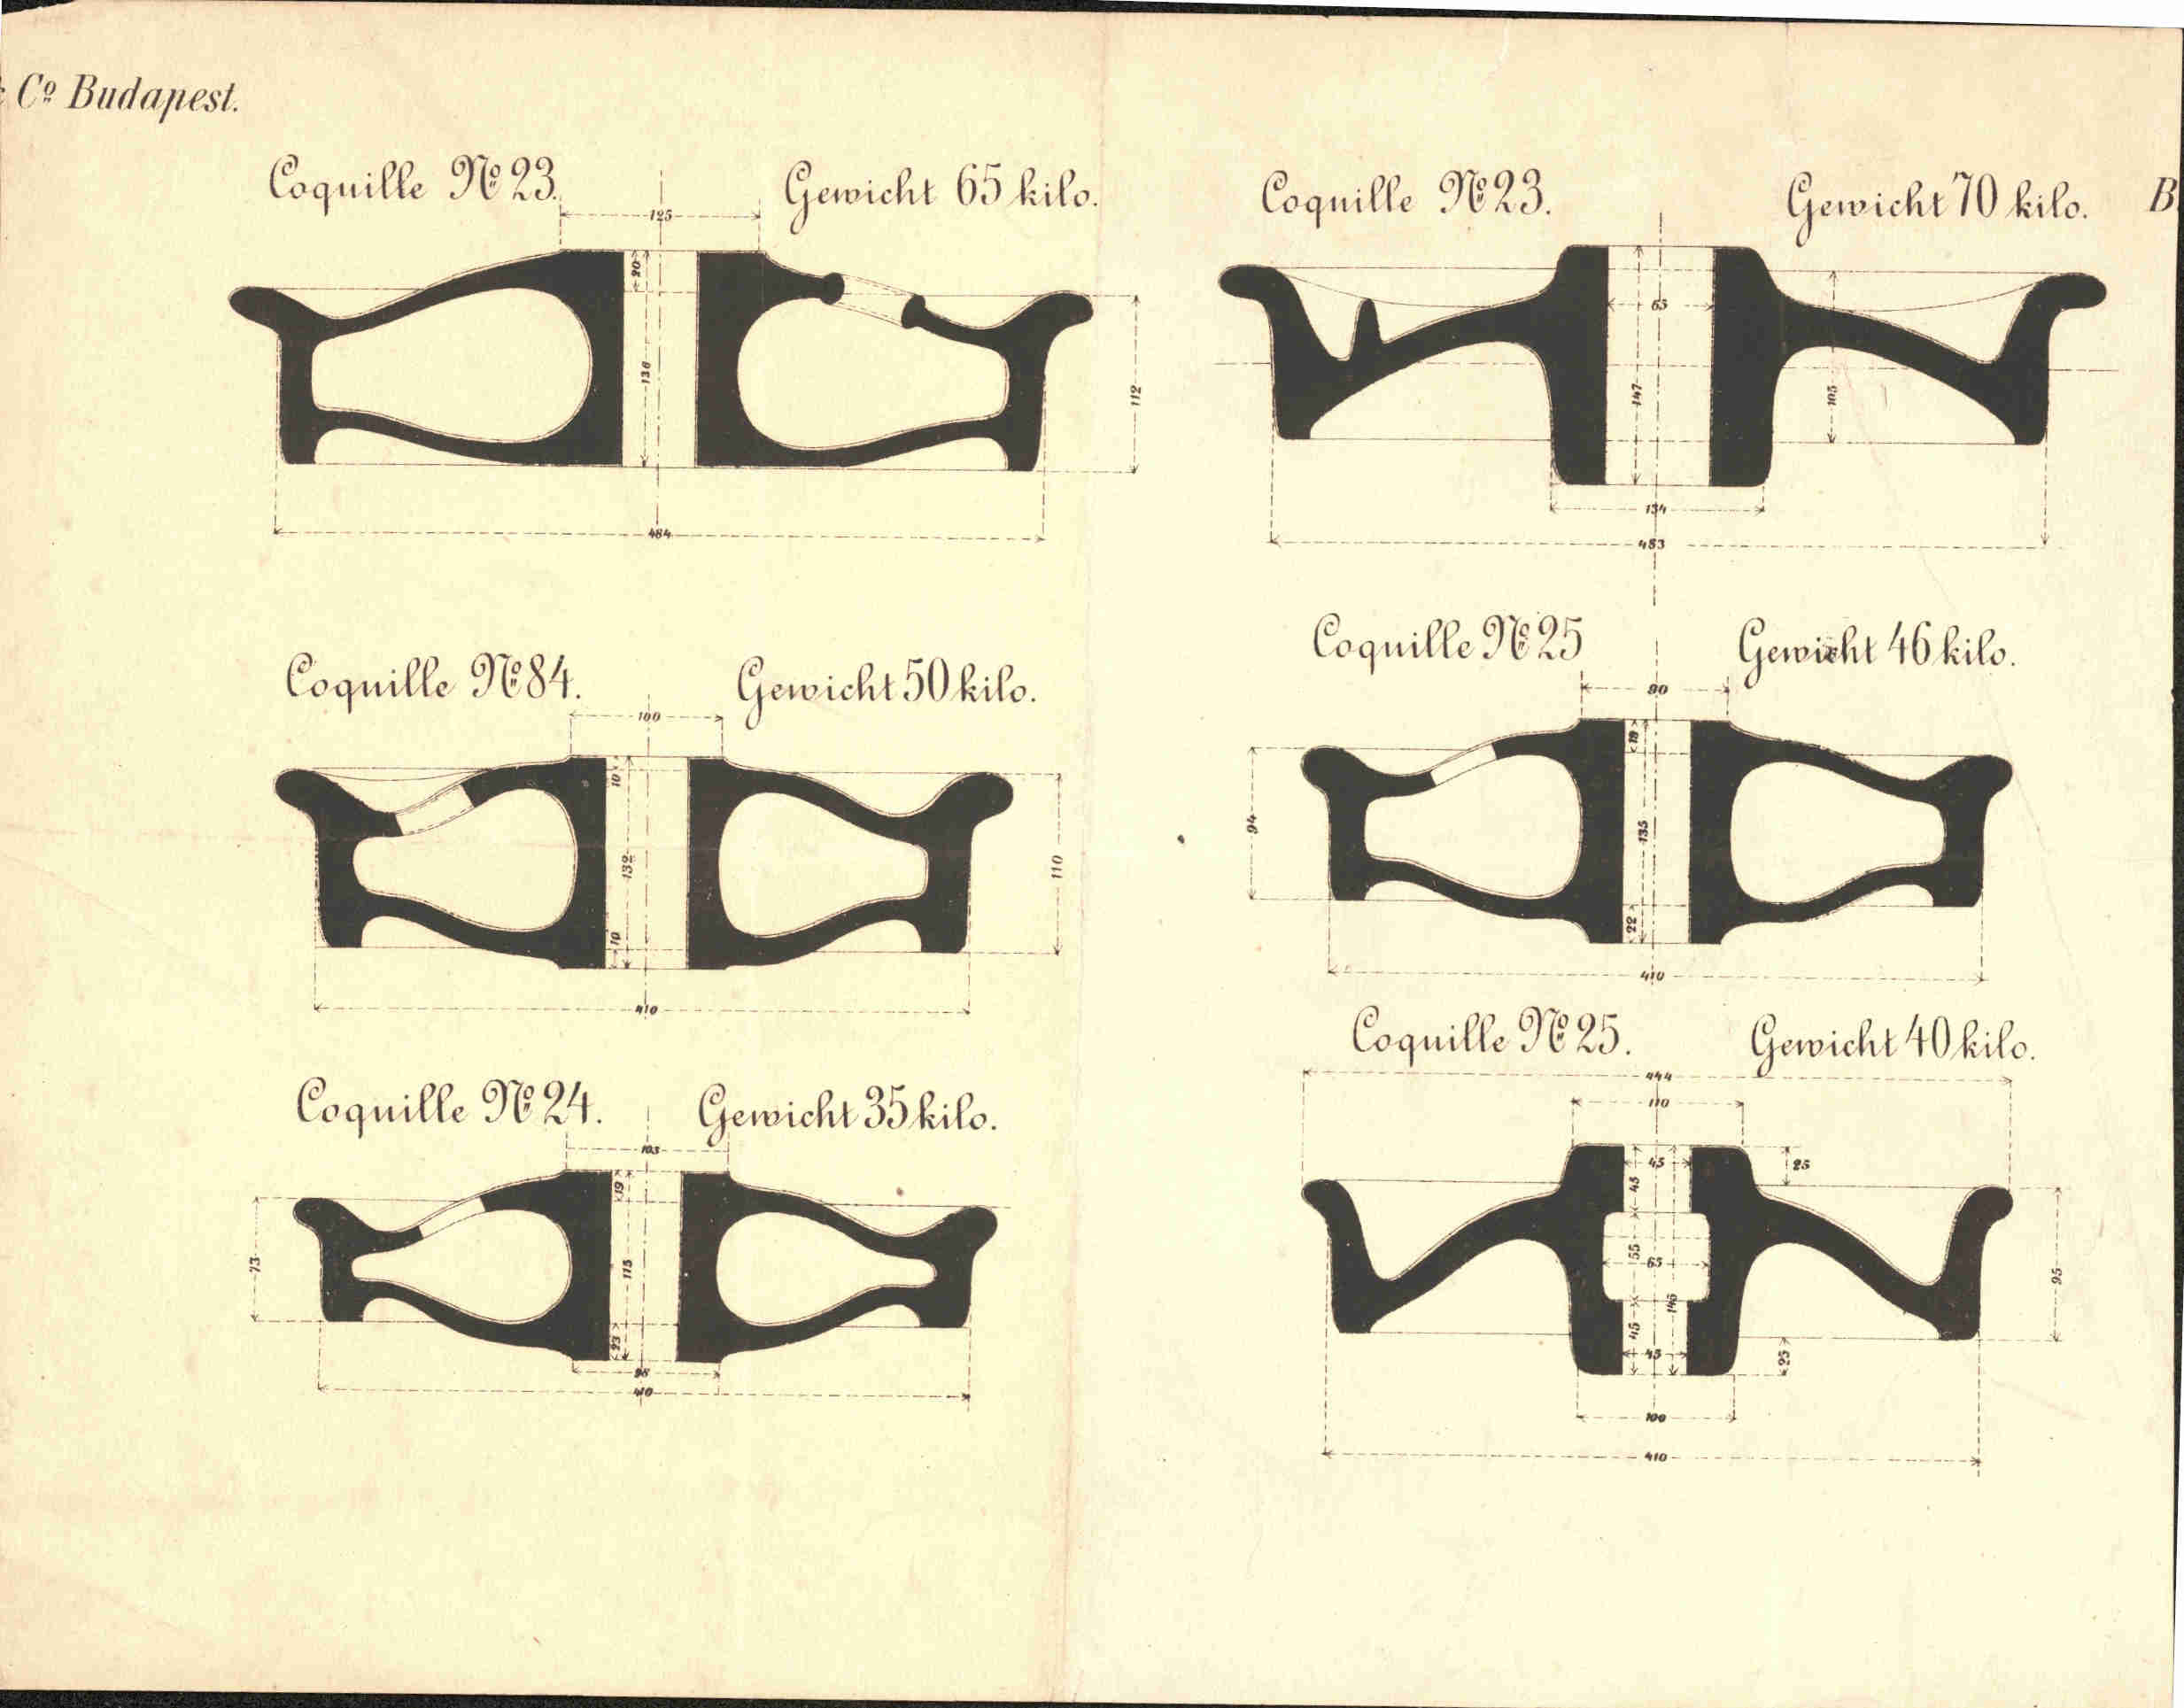 Cº Budapest.
Coquille Nº 23.
Gewicht 65 kilo.
125
20
136
112
484
Coquille Nº 23.
Gewicht 70 kilo.
B
65
147
105
134
483
Coquille Nº 84.
Gewicht 50 kilo.
100
10
132
10
110
410
Coquille Nº 25
Gewicht 46 kilo.
90
19
94
135
22
410
Coquille Nº 24.
Gewicht 35 kilo.
103
19
73
115
23
98
410
Coquille Nº 25.
Gewicht 40 kilo.
444
110
45
25
45
55
65
145
95
45
45
25
100
410